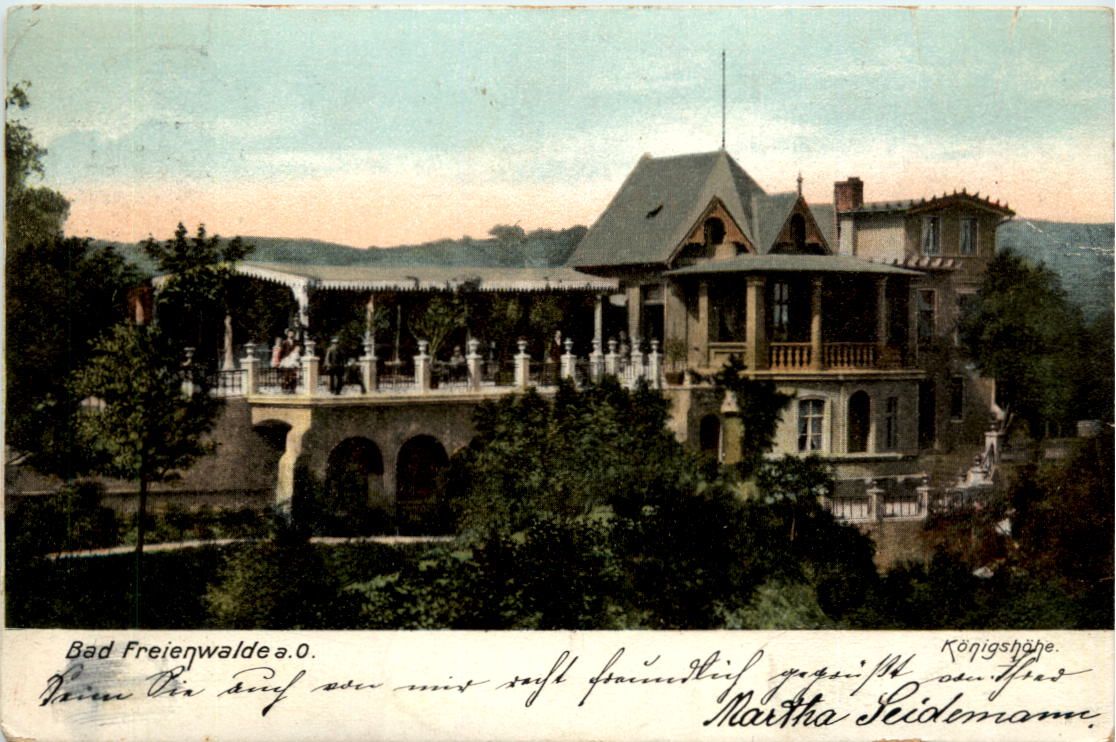 Bad Freienwalde a. O.
Königshöhe.
Sein Sie auch von mir recht freundlich gegrüßt von Ihrer
Martha Seidemann.